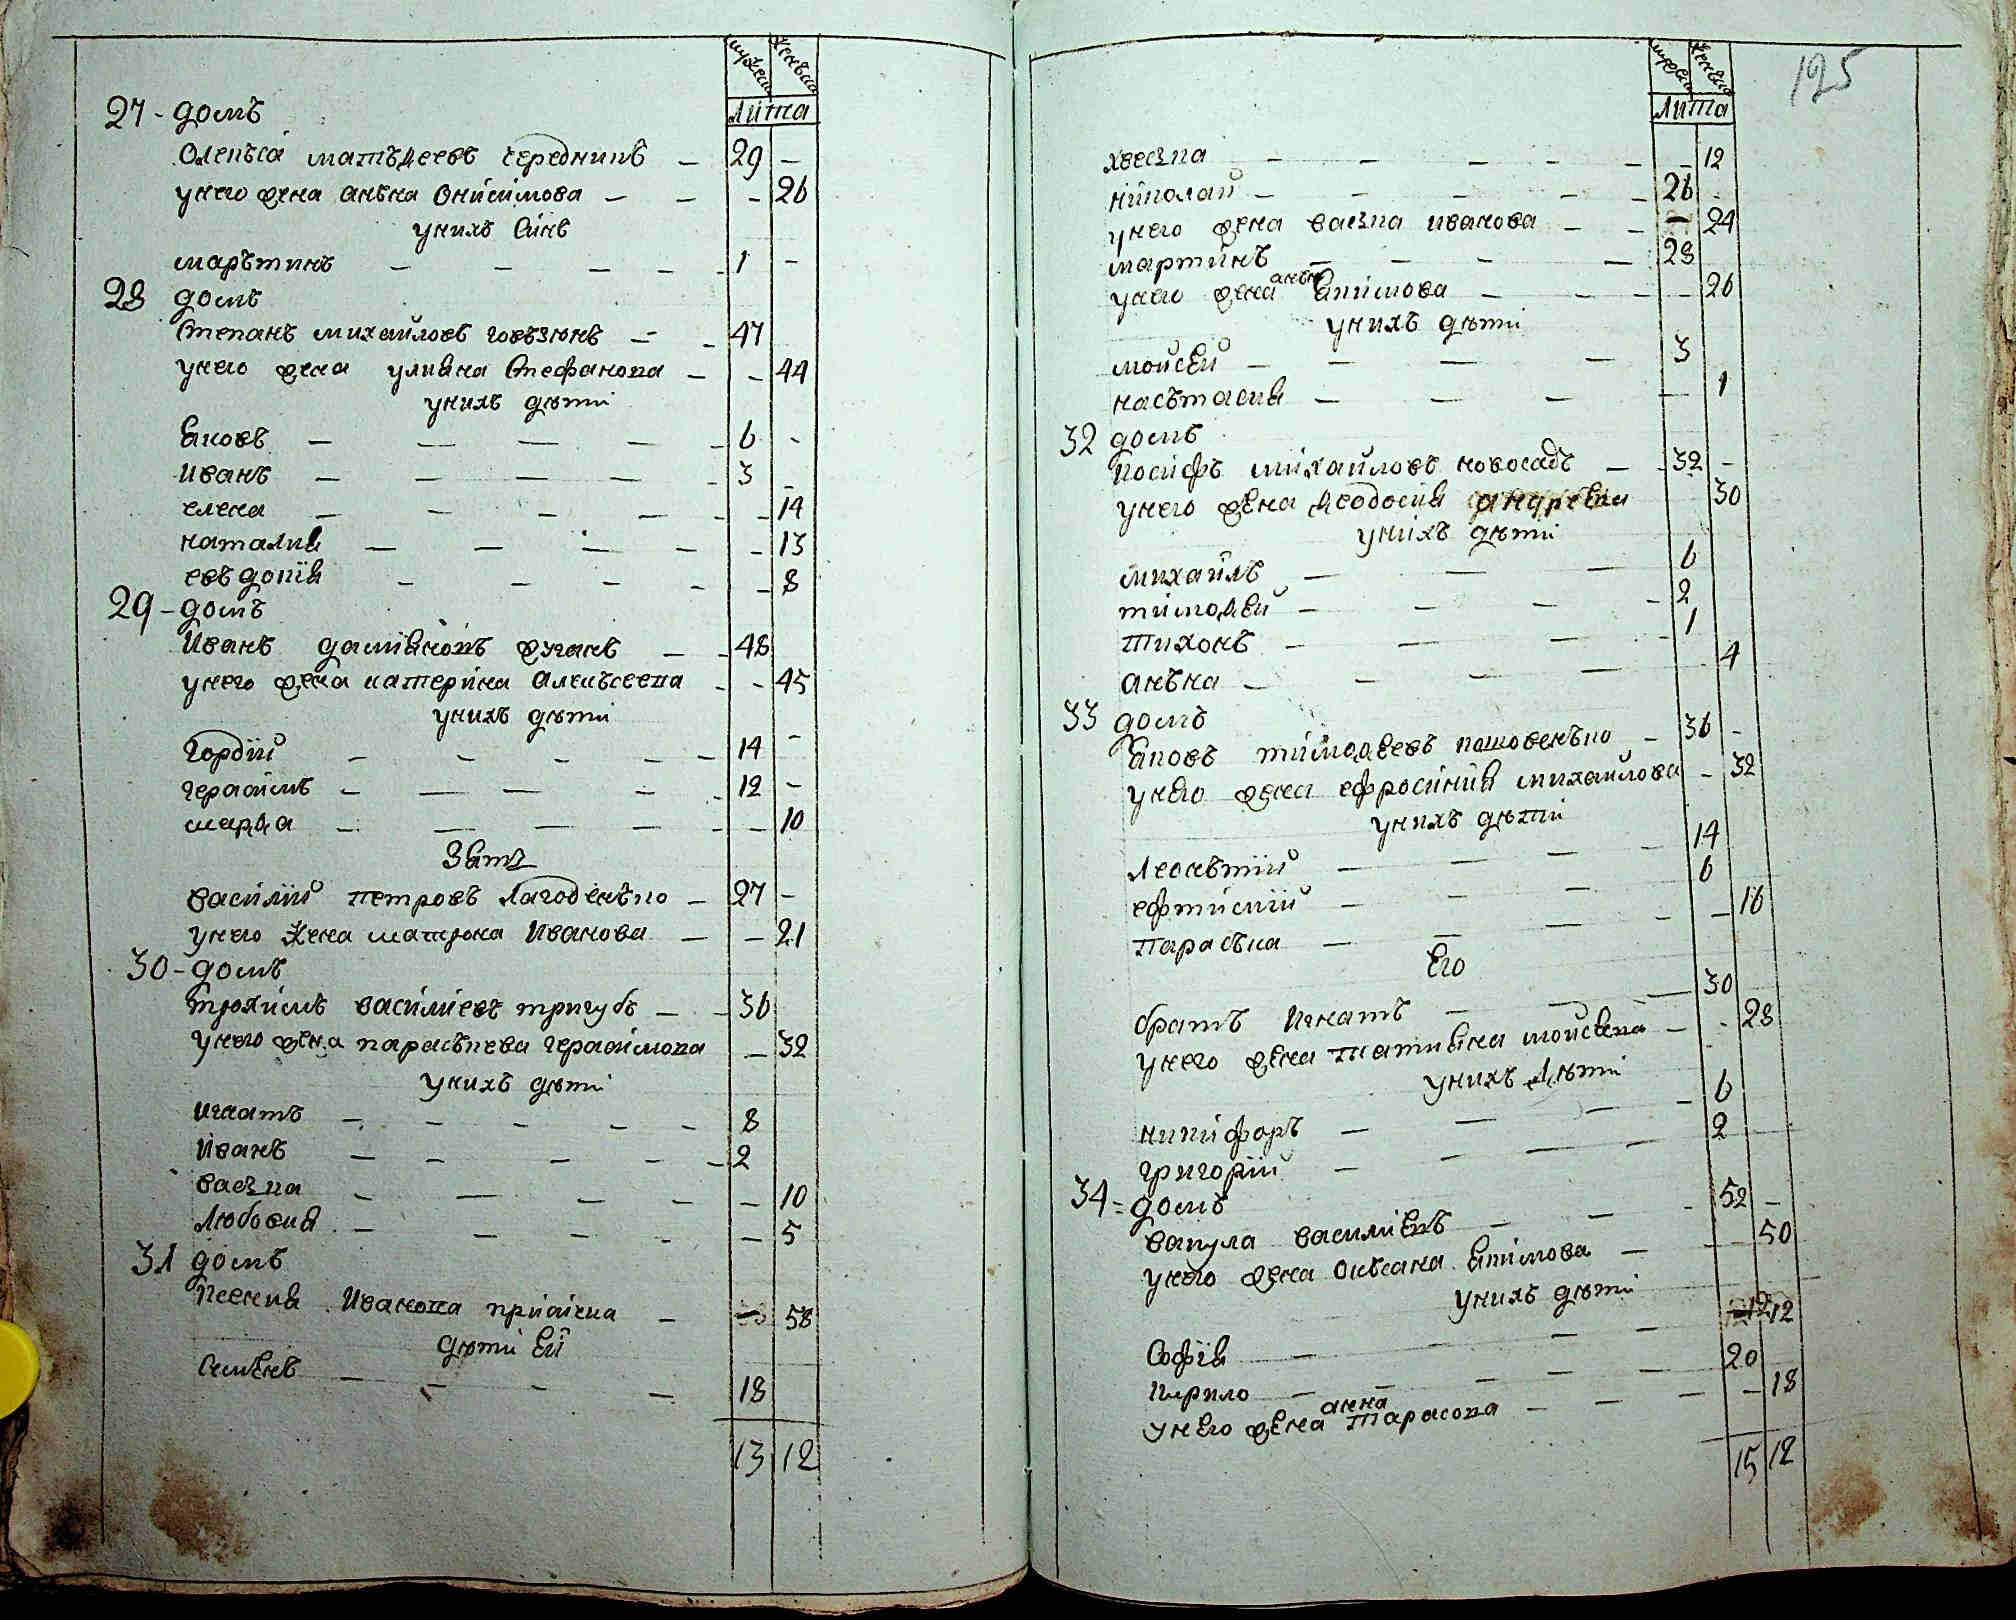 мужеск женъска
Лита
27 - домъ
Олекъса матъѳеевъ середникъ — 29 —
унего жена анъна Онисимова — — - 26
унихъ синъ
марътинъ — — — — 1 -
28 домъ
Степанъ михайловъ говъзюнъ — - 47
унего жена улияна Стефанова — - 44
унихъ дѣти
Яковъ — — — — - 6 -
Иванъ — — — — - 3 -
елена — — — — - 14
наталия — — — — - 13
евъдокія — — — - - 8
29 - домъ
Иванъ даміяновъ — - 48
унего жена катерина Алекъсеева - - 45
унихъ дѣти
Гордій — — — — — 14 -
герасимъ — — — — - 12 -
марѳа — — — — - - 10
Зять
василий петровъ Лагоденъко — 27 -
унего жена матрона Иванова — - 21
30 - домъ
трохимъ василиевъ тригубъ — - 36
унего жена парасъкева герасимова - 32
унихъ дѣти
игнатъ — — — — - 8
Иванъ — — — — - 2
васъка — — — — - 10
Любовия — — — - - 5
31 домъ
Ксения Иванова — 58
дѣти ей
Симѣнъ — — — — 18
13 12
125
мужеск женъска
Лита
хвеська — — — — — - 12
николай — — — — — 26
унего жена васъка иванова — — 24
мартинъ — — — — 28
унего жена анъна Якимова — — - 26
унихъ дѣти
мойсѣй — — — — 3
насътасия — — — — 1
32 домъ
Иосифъ михайловъ новосадъ — - 32 -
унего жена ѳеодосия андреева 30
унихъ дѣти
михайлъ — — — 6
тимоѳѣй — — — - 2
тихонъ — — — - 1
анъна — — — — 4
33 домъ
Яковъ тимоѳеевъ — 36 -
унего жена ефросиния михайлова - 32
унихъ дѣти
Леонътий — — — - 14
ефтимий — — — 6
Парасъка — — — - - 16
Его
братъ Игнатъ — — — 30
унего жена татияна мойсѣева — - 28
унихъ дѣти
никифоръ — — — - 6
григорий — — — 2
34 - домъ
вакула василиевъ — — - 52 -
унего жена Окъсана Якимова — — 50
унихъ дѣти
Софія — — — 12
Кирило — — — — 20
унего жена анна Тарасова — — — 18
15 12